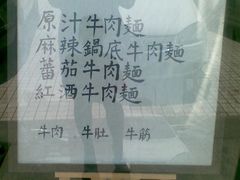 原汁牛肉麵
麻辣鍋底牛肉麵
蕃茄牛肉麵
紅酒牛肉麵
牛肉 牛肚 牛筋